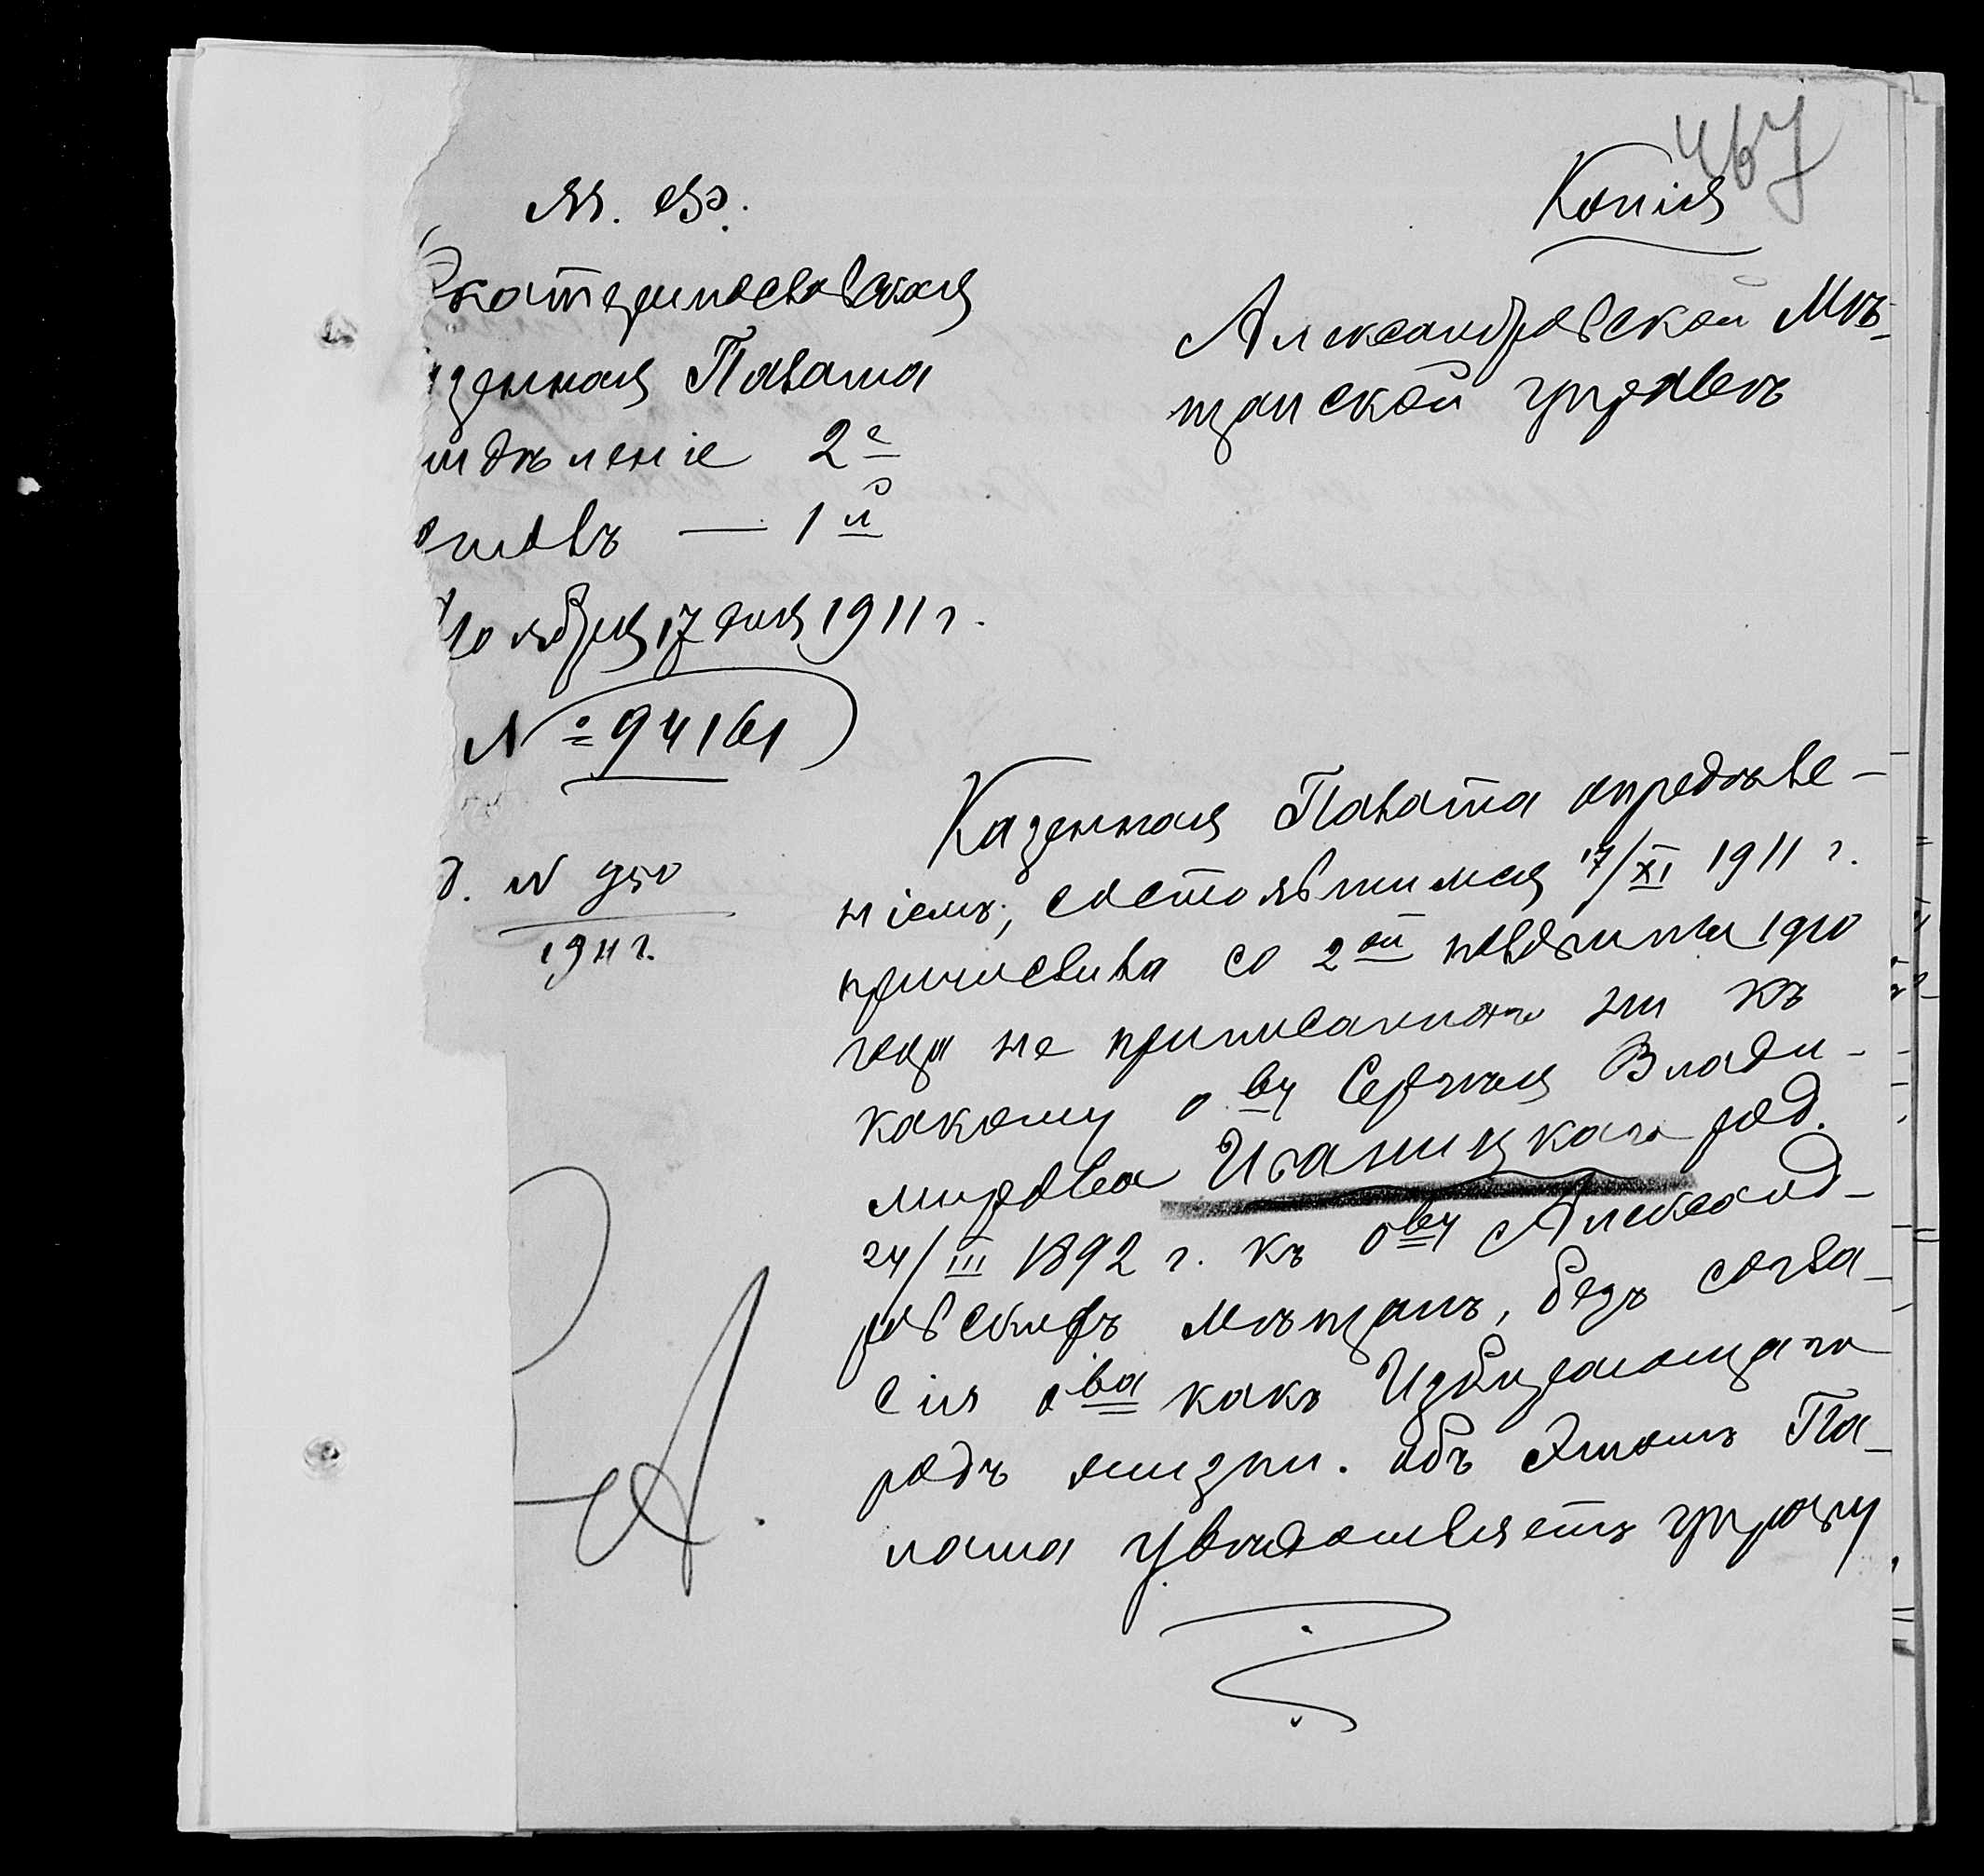 467
Копія
М. Ф.
Екатеринославская
зенная Палата
тдѣленіе 2е
столъ — 1й
Ноября 17 дня 1911 г.
№ 94161
д. N 950
1911 г.
Александровской Мѣ-
щанской управѣ
Казенная Палата опредѣле-
ніемъ, состоявшимся 17/XI 1911 г.
причислила со 2ой половины 1910
года не приписаннаго ни къ
какому о-ву Сергѣя Влади-
мирова Иваницкаго род.
24/III 1892 г. къ о-ву Александ-
ровскихъ мѣщанъ, безъ согла-
сія о-ва какъ Избирающаго
родъ жизни. Объ Этомъ Па-
лата увѣдомляетъ управу